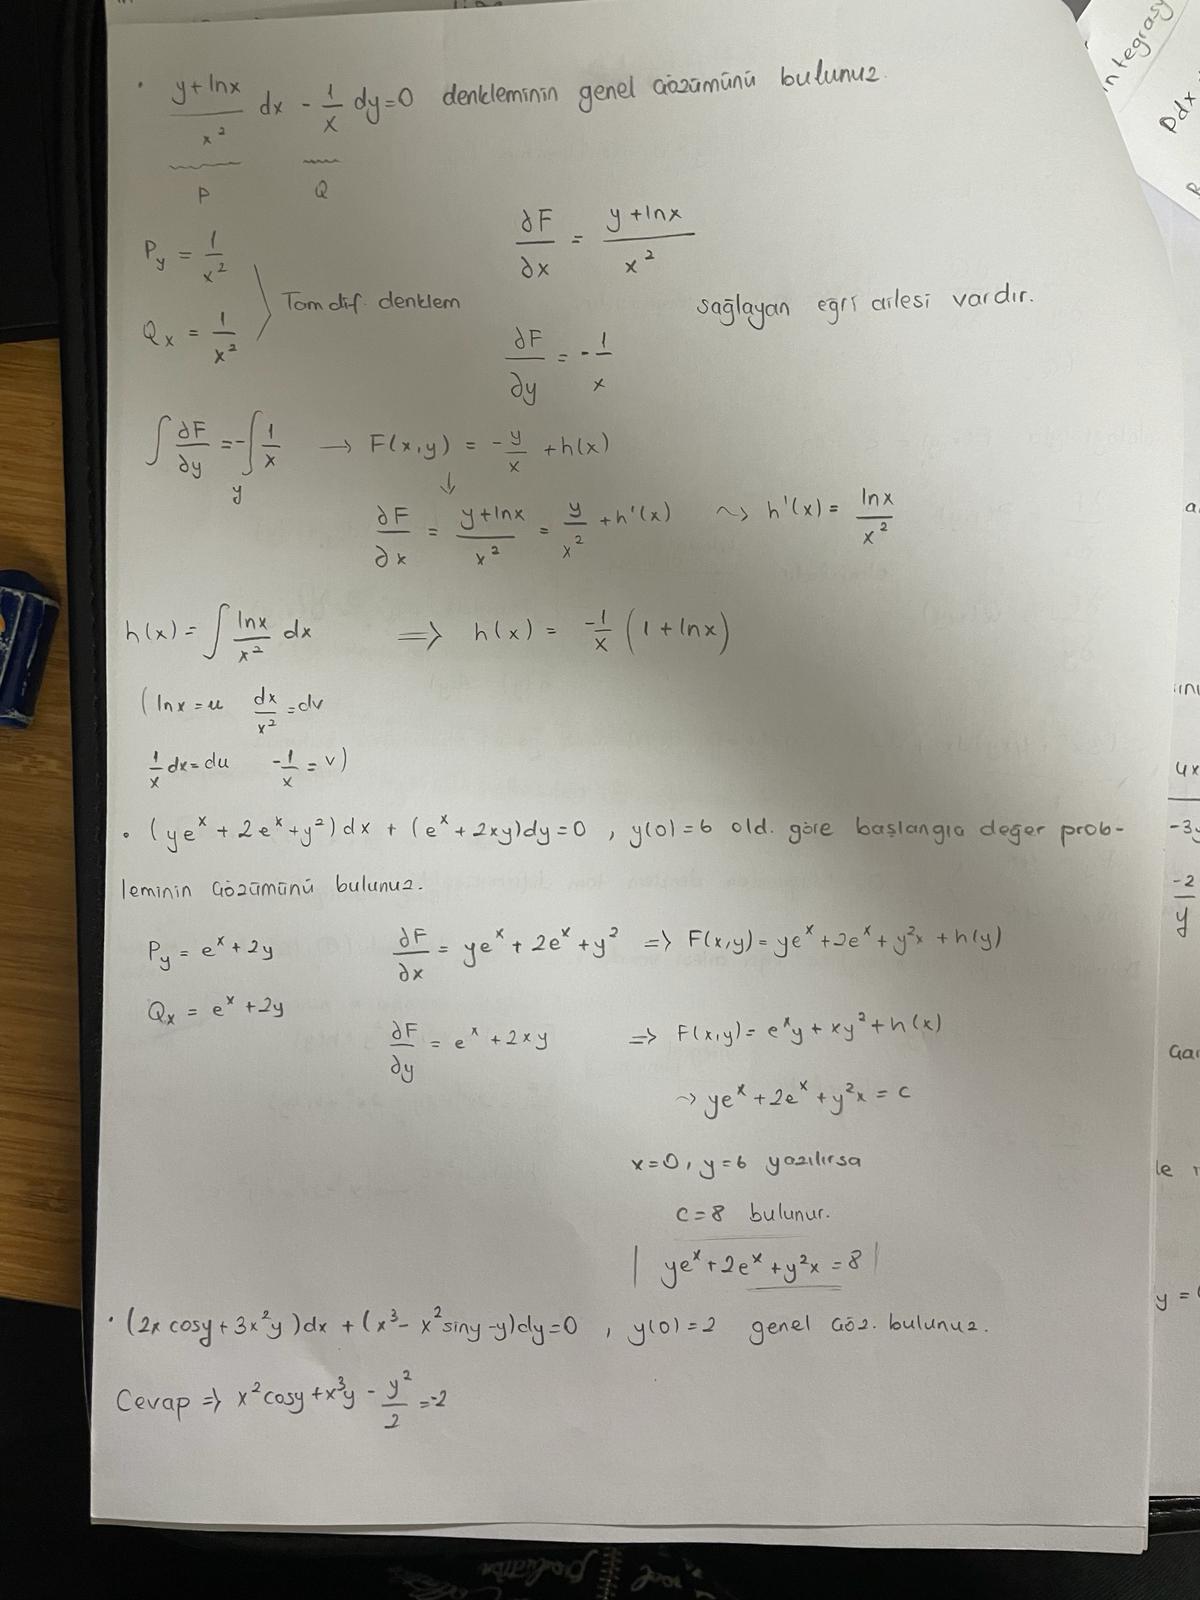 • (y+lnx)/x² dx - 1/x dy=0 denkleminin genel çözümünü bulunuz.
P Q
P_y = 1/x²
Q_x = 1/x²
Tam dif. denklem
∂F/∂x = (y+lnx)/x²
∂F/∂y = -1/x
sağlayan eğri ailesi vardır.
∫ ∂F/∂y = -∫_y 1/x → F(x,y) = -y/x + h(x)
↓
∂F/∂x = (y+lnx)/x² = y/x² + h'(x) ⇝ h'(x) = lnx/x²
h(x) = ∫ lnx/x² dx ⟹ h(x) = -1/x (1+lnx)
(lnx=u dx/x² =dv
1/x dx=du -1/x = v)
• (ye^x + 2e^x + y²)dx + (e^x + 2xy)dy=0 , y(0)=6 old. göre başlangıç değer prob-
leminin çözümünü bulunuz.
P_y = e^x + 2y
Q_x = e^x + 2y
∂F/∂x = ye^x + 2e^x + y² ⇒ F(x,y) = ye^x + 2e^x + y²x + h(y)
∂F/∂y = e^x + 2xy ⇒ F(x,y) = e^x y + xy² + h(x)
⇝ ye^x + 2e^x + y²x = c
x=0, y=6 yazılırsa
c=8 bulunur.
| ye^x + 2e^x + y²x = 8 |
• (2x cosy + 3x²y)dx + (x³ - x²siny - y)dy=0 , y(0)=2 genel çöz. bulunuz.
Cevap ⇒ x²cosy + x³y - y²/2 = -2
integrasy
Pdx
4x
-3y
-2/y
y =